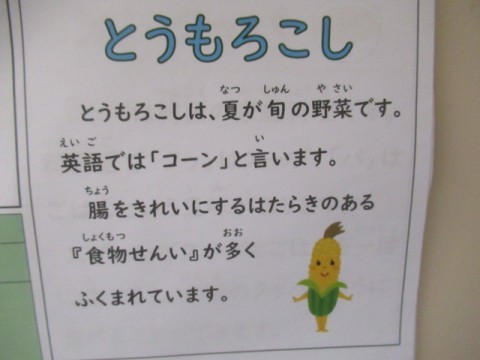 とうもろこし
なつ しゅん や さい
とうもろこしは、夏が旬の野菜です。
えい ご い
英語では「コーン」と言います。
ちょう
腸をきれいにするはたらきのある
しょくもつ おお
『食物せんい』が多く
ふくまれています。